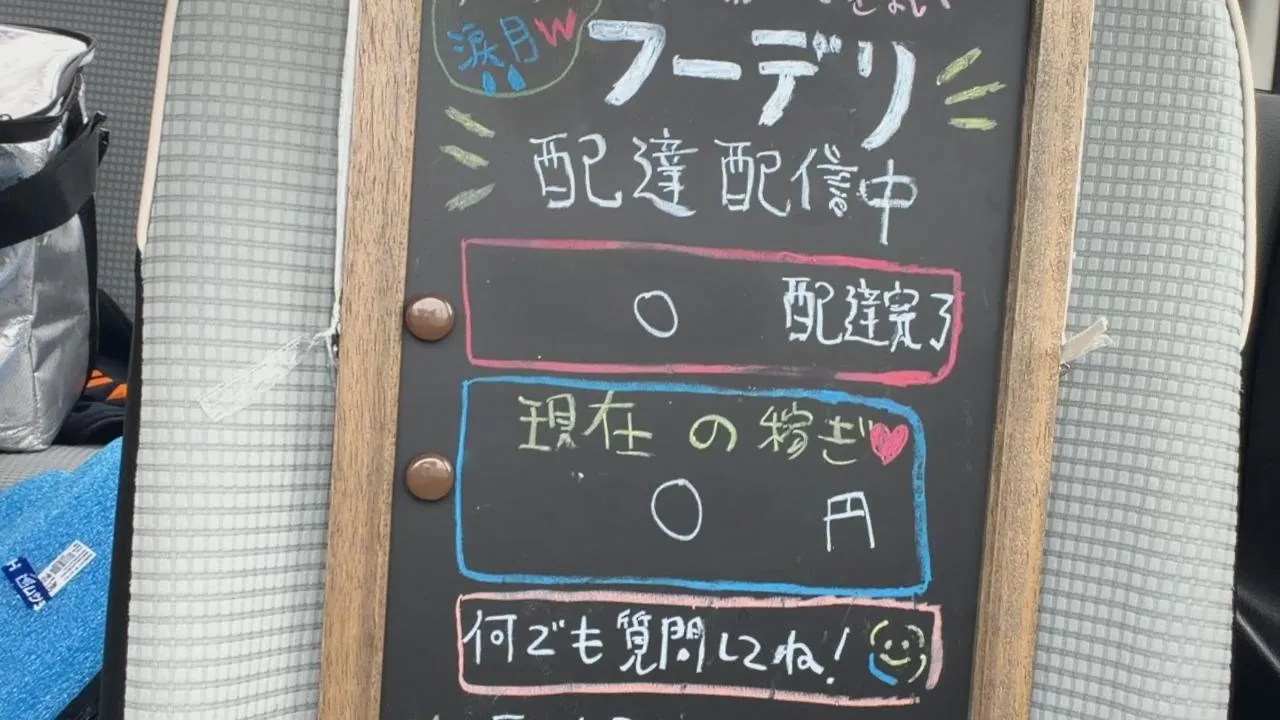 涙月W
フーデリ
配達配信中
0 配達完了
現在の稼ぎ
0 円
何でも質問してね!